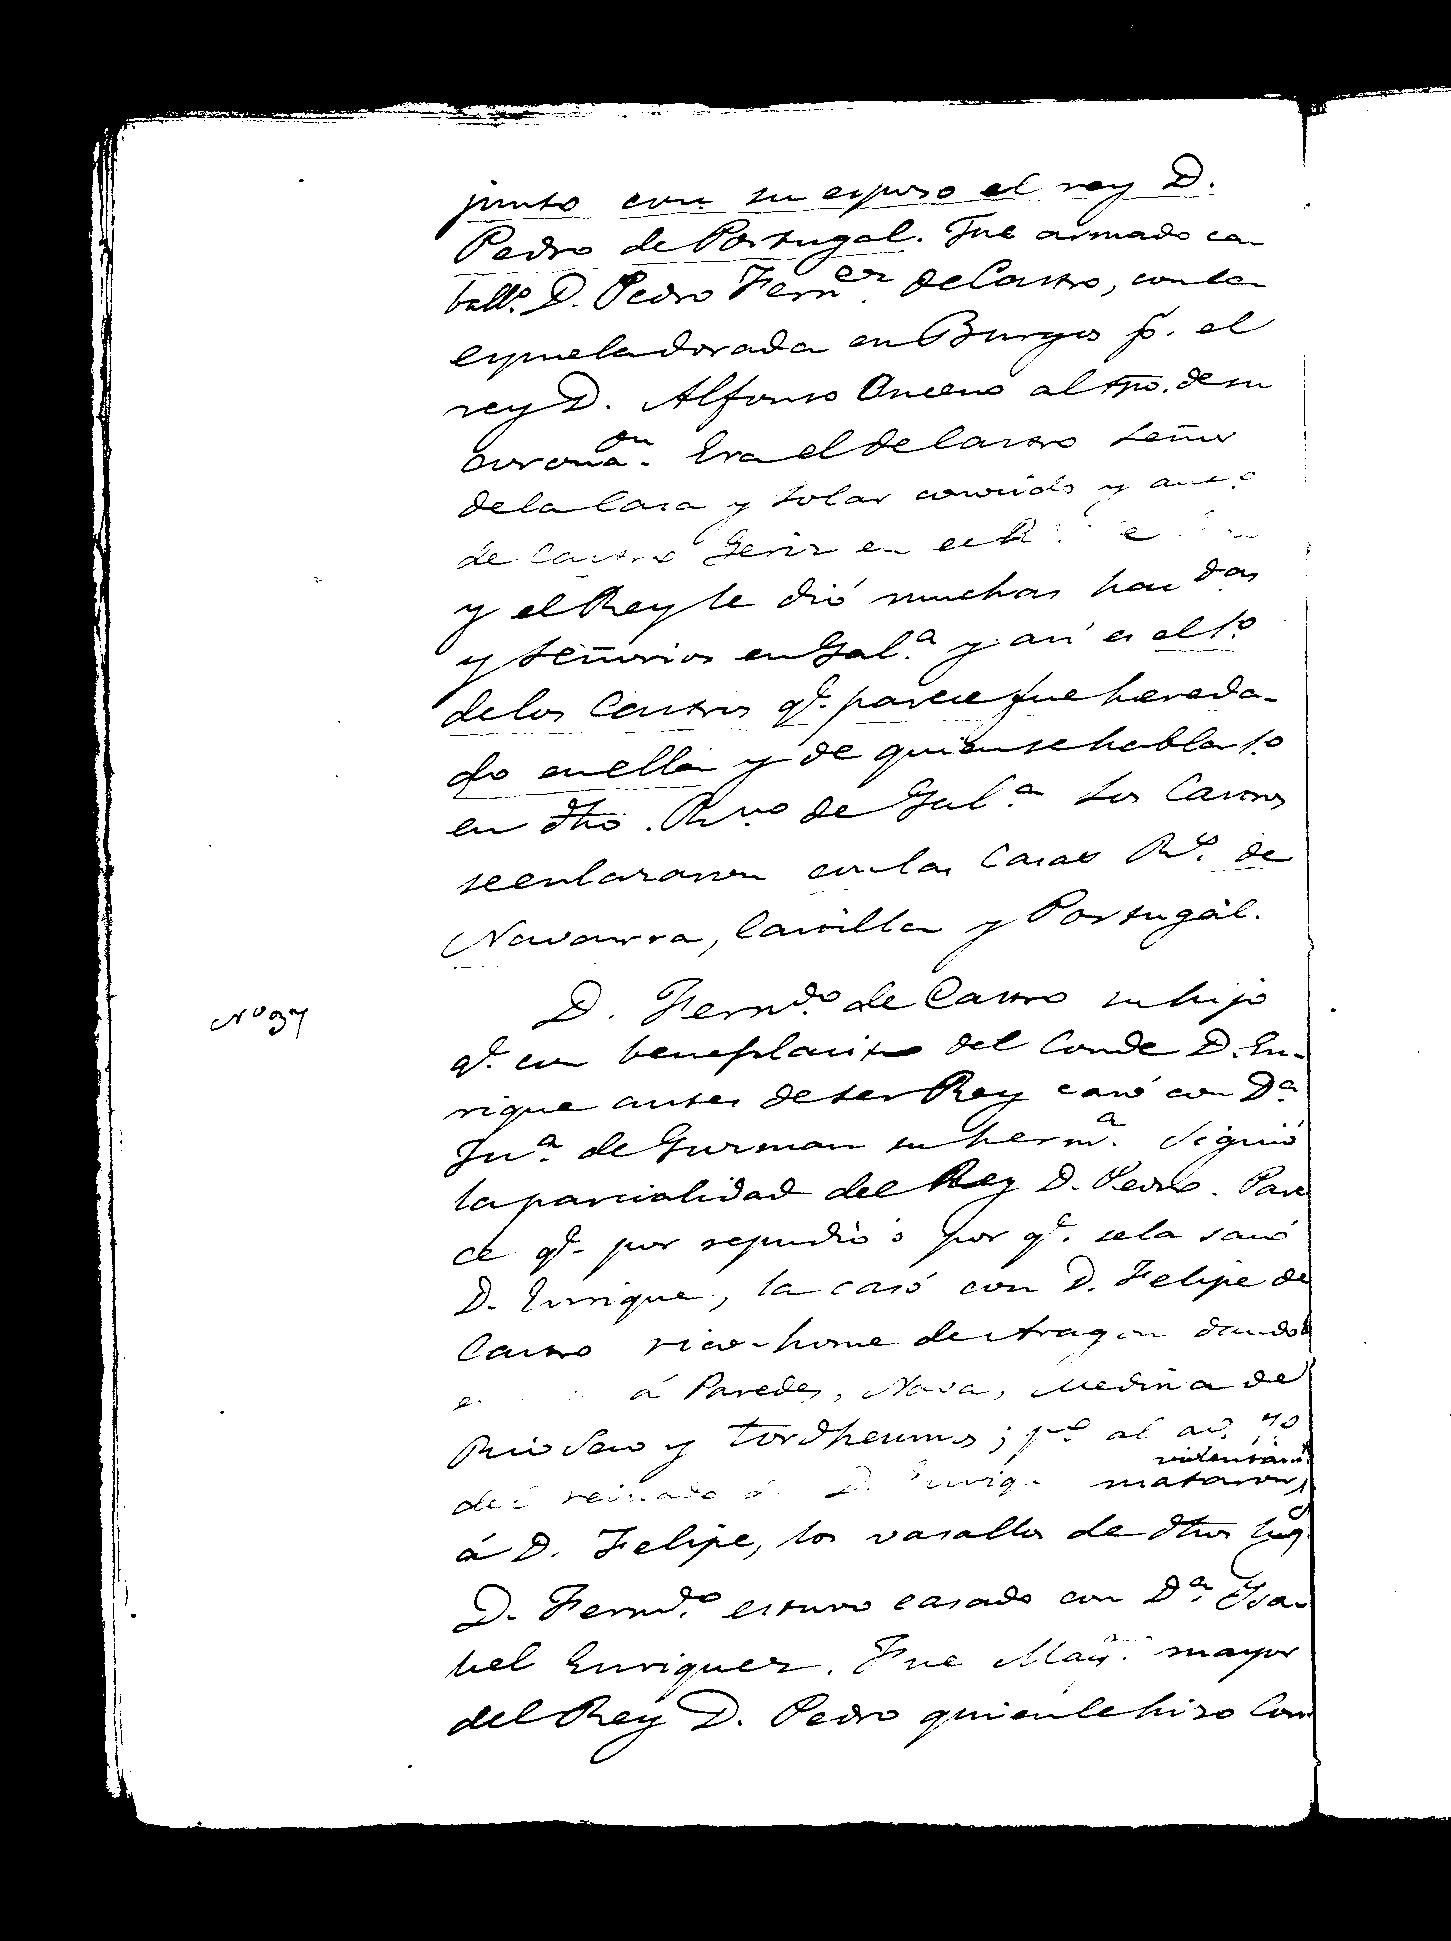 junto con su esposo el rey D.
Pedro de Portugal. Fue armado ca-
ball.º D. Pedro Fern.ez de Castro, con la
espuela dorada en Burgos p.r el
rey D. Alfonso Onceno al tpo. de su
corona.on Era el de Castro Señor
de la Casa y solar conocido y ant.o
de Castro Geriz en el R
y el Rey le dió muchas haciendas
y Señorios en Gal.a y asi es el 1.o
de los Castros q.e parece fue hereda-
do en ella y de quien se habla 1.o
en dho. R.no de Gal.a Los Castros
se enlazaron con las Casas R.s de
Navarra, Castilla y Portugal.
Nº 37
D. Fern.do de Castro su hijo
q.e con beneplacito del Conde D. En-
rique antes de ser Rey casó con D.a
Ju.a de Guzman su herm.a Siguió
la parcialidad del Rey D. Pedro. Pare
ce q.e por repudio ó por q.e se la sacó
D. Enrique, la casó con D. Felipe de
Castro rico-home de Aragon dandole
á Paredes, Nava, Medina de
Rio Seco y Tordheumos; p.o al
del reinado de D. Enriq. violentam.te mataron
á D. Felipe, los vasallos de dhos lug.
D. Fern.do estuvo casado con D.a Ysa-
bel Enriquez. Fue May. mayor
del Rey D. Pedro quien le hizo Con